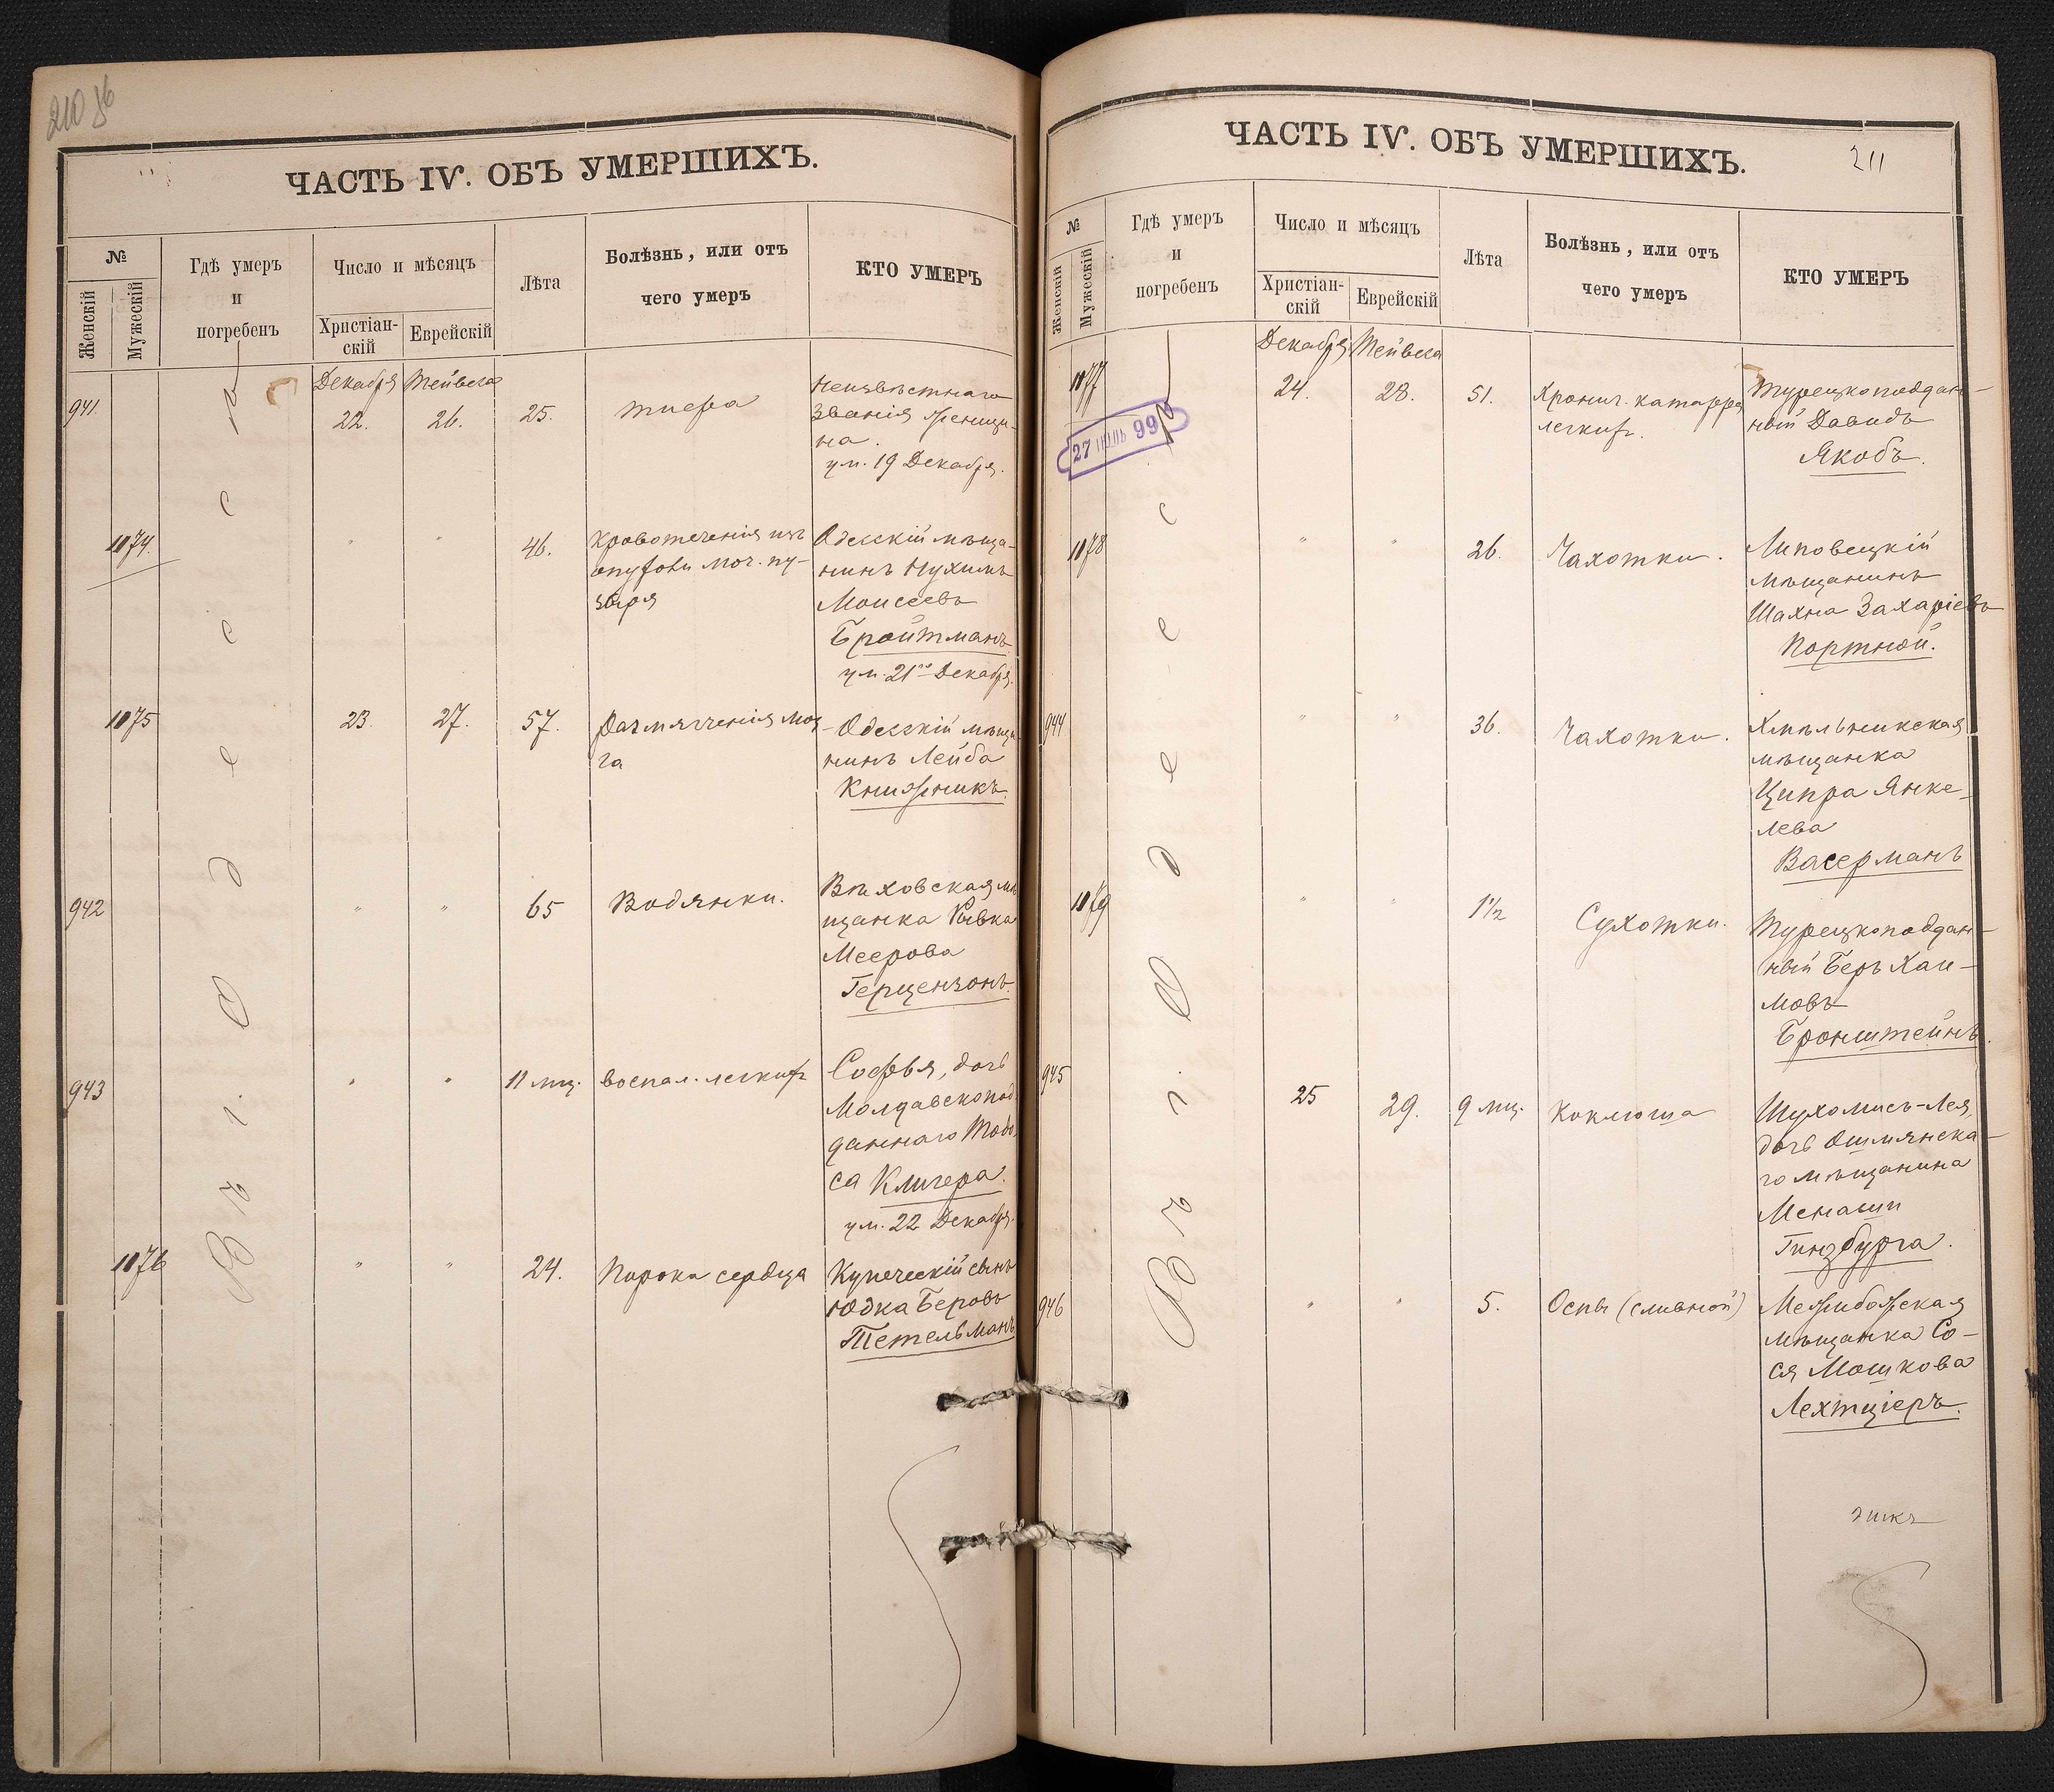 210 об
ЧАСТЬ IV. ОБЪ УМЕРШИХЪ.
№
Женскій
Мужескій
Гдѣ умеръ
и
погребенъ
Число и мѣсяцъ
Христіан-
скій
Еврейскій
Лѣта
Болѣзнь, или отъ
чего умеръ
КТО УМЕРЪ
Въ Одессѣ
Декабря Тейвеса
941. 22. 26. 25. тифа
Неизвѣстнаго
званія женщи-
на.
ум. 19 Декабря.
1074. " " 46.
Кровотеченія изъ
опухоли моч. пу-
зыря
Одесскій мѣща-
нинъ Нухимъ
Моисеевъ
Бройтманъ
ум. 21го Декабря.
1075 23. 27. 57.
Размягченія моз-
га
Одесскій мѣща-
нинъ Лейба
Книжникъ.
942 " " 65 Водянки.
мѣ-
щанка Ривка
Меерова
Герцензонъ.
943 " " 11 мц. воспал. легкихъ
Софья, дочь
Молдавскопод-
даннаго
са Клигера.
ум. 22 Декабря.
1076 " " 24. Порока сердца
Купеческій сынъ
Юдка Беровъ
Тетельманъ
ЧАСТЬ IV. ОБЪ УМЕРШИХЪ.
211
№
Женскій
Мужескій
Гдѣ умеръ
и
погребенъ
Число и мѣсяцъ
Христіан-
скій
Еврейскій
Лѣта
Болѣзнь, или отъ
чего умеръ
КТО УМЕРЪ
Въ Одессѣ
Декабря Тейвеса
1077 24. 28. 51.
Хронич. катарра
легкихъ.
Турецкоподдан-
ный Давидъ
Якобъ.
27 99
1078 " " 26. Чахотки.
Липовецкій
мѣщанинъ
Шахна Захаріевъ
Портной.
944 " " 36. Чахотки.
Хмѣльникская
мѣщанка
Ципра Янке-
лева
Васерманъ
1079 " " 1½ Сухотки.
Турецкоподдан-
ный Беръ Хаи-
мовъ
Бронштейнъ.
945 25 29. 9 мц. Коклюша
Лея,
дочь Ошмянска-
го мѣщанина
Менаши
Гинзбурга.
946 " " 5. Оспы (сливной)
Межибожская
мѣщанка Со-
ся Мошкова
Лехтціеръ.